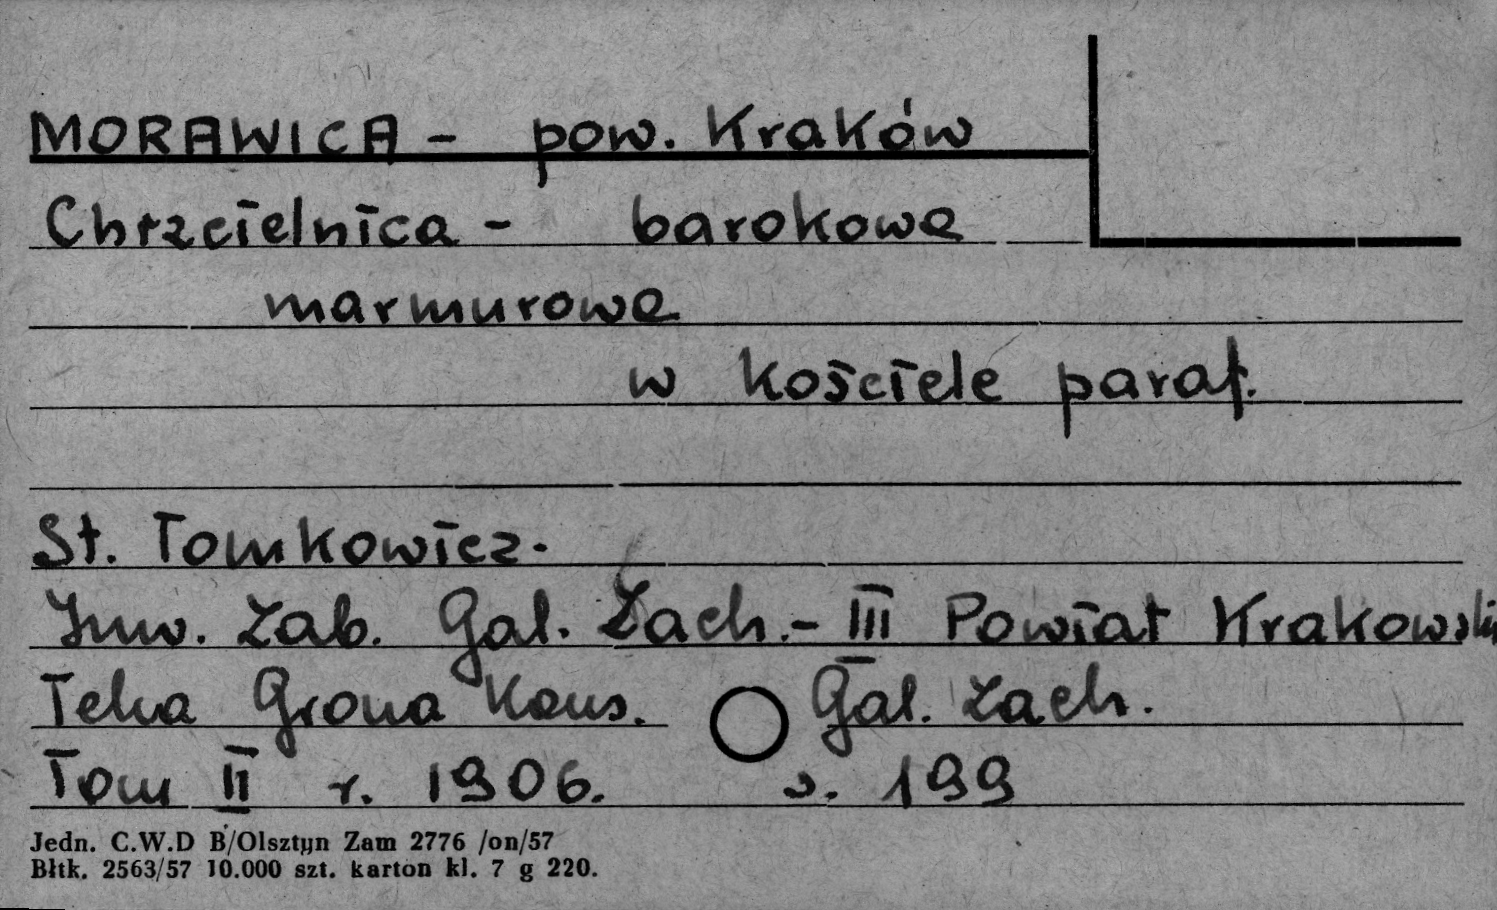 MORAWICA - pow. Kraków
Chrzcielnica - barokowa
marmurowa
w kościele paraf.
St. Tomkowicz.
Inw. Zab. Gal. Zach. - III Powiat Krakowski
Teka Grona Kons. Gal. Zach.
Tom II r. 1906. s. 199
Jedn. C.W.D B/Olsztyn Zam 2776 /on/57
Błtk. 2563/57 10.000 szt. karton kl. 7 g 220.